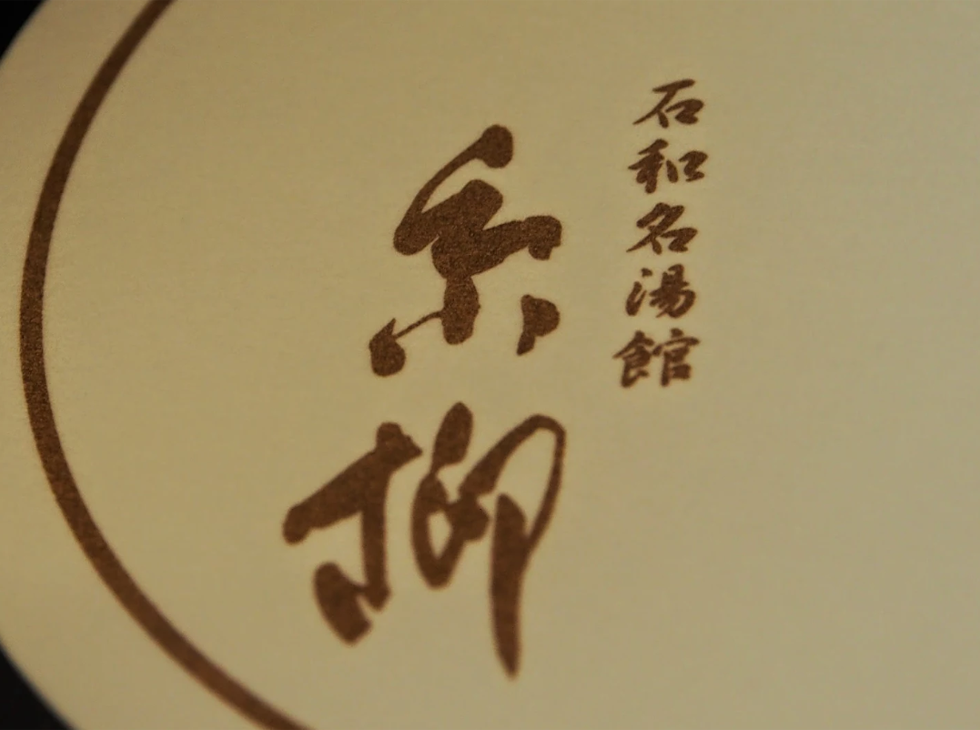 石和名湯館
糸柳